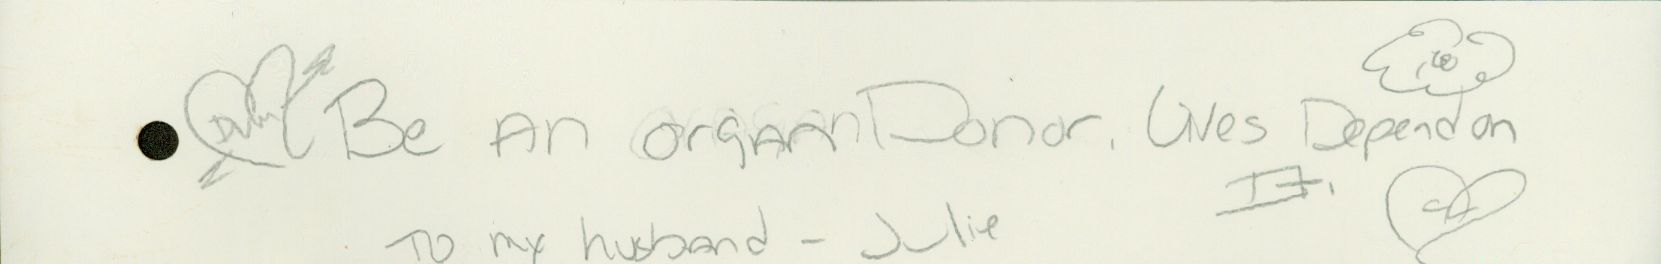 Be An organ Donor. Lives Depend on
It.
To my husband - Julie